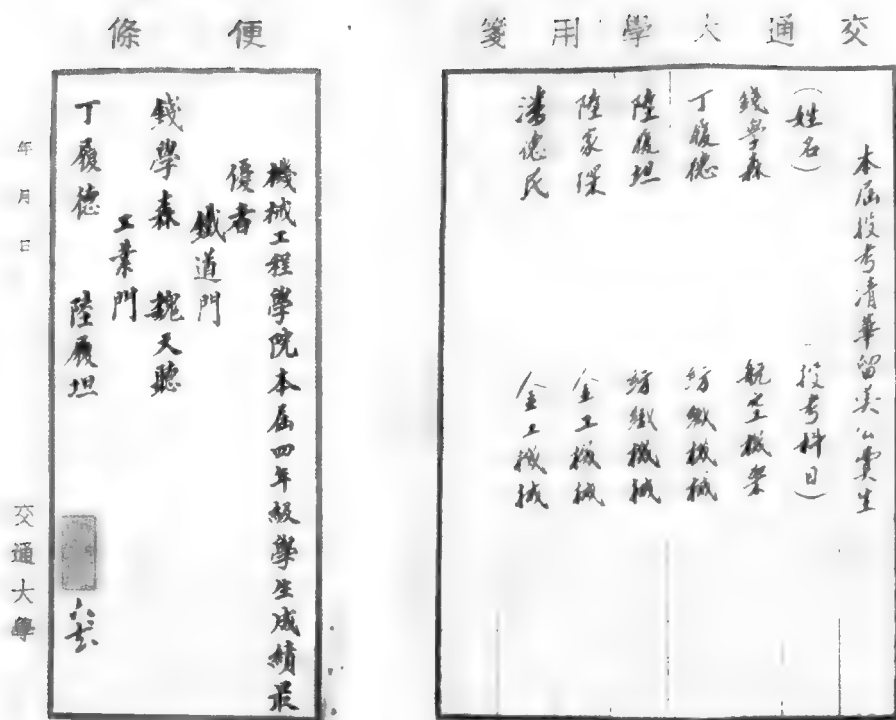 交通大學用箋
本屆投考清華留美公費生
（姓名） 投考科目）
錢學森 航空機架
丁履德 紡織機械
陸履坦 紡織機械
陸家琛 金工機械
潘德民 金工機械
便條
機械工程學院本屆四年級學生成績最
優者
鐵道門
錢學森 魏天聽
工業門
丁履德 陸履坦
年月日
交通大學